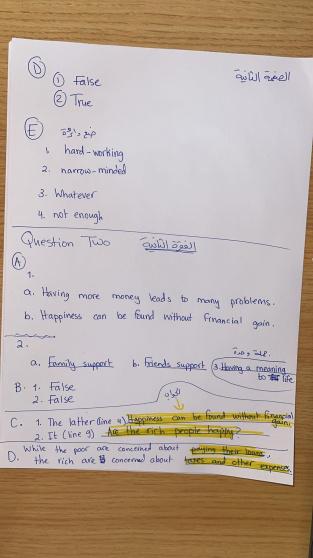 الصفحة الثانية
D
① False
② True
E ضع دائرة
1. hard-working
2. narrow-minded
3. Whatever
4. not enough
Question Two الفقرة الثانية
A
1.
a. Having more money leads to many problems.
b. Happiness can be found without financial gain.
2.
a. Family support b. Friends support 3. Having a meaning to life
B. 1. False
2. False
C. 1. The latter (line 4) Happiness can be found without financial gain.
2. It (line 9) Are the rich people happy?
D. While the poor are concerned about paying their loans,
the rich are concerned about taxes and other expenses.